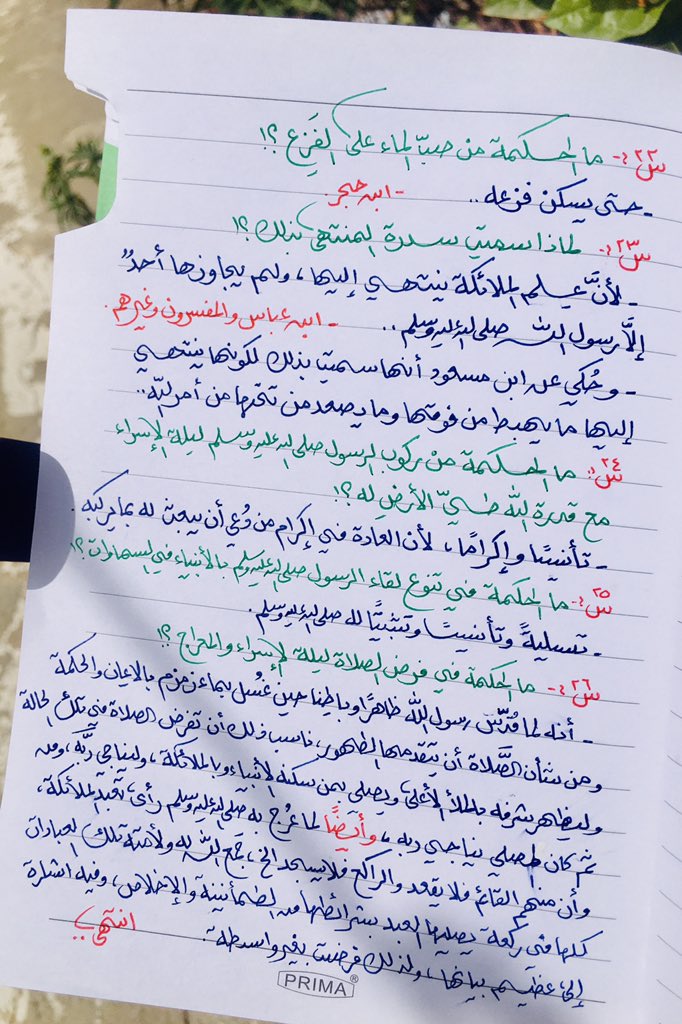 س٢٢:- ما الحكمة من صبّ الماء على الفَزِع ؟!
- حتى يسكن فزعه .. - ابن حجر.
س٢٣:- لماذا سميت سدرة المنتهى بذلك ؟!
- لأنَّ علم الملائكة ينتهي إليها، ولم يجاوزها أحدٌ
إلاَّ رسول الله صلى الله عليه وسلم .. - ابن عباس والمفسرون وغيرهم.
- وحُكي عن ابن مسعود أنها سميت بذلك لكونها ينتهي
إليها ما يهبط من فوقها وما يصعد من تحتها من أمر الله..
س٢٤:- ما الحكمة منْ ركوب الرسول صلى الله عليه وسلم ليلة الإسراء
مع قدرة الله طيّ الأرض له ؟!
- تأنيسًا وإكرامًا، لأن العادة في إكرام من دُعي أن يبعث له بما يركبه.
س٢٥:- ما الحكمة في تنوع لقاء الرسول صلى الله عليه وسلم بالأنبياء في السماوات؟!
- تسليةً وتأنيسًا وتثبيتًا له صلى الله عليه وسلم.
س٢٦:- ما الحكمة في فرض الصلاة ليلة الإسراء والمعراج ؟!
- أنه لما قُدِّس رسول الله ظاهرًا وباطنا حين غُسل بماء زمزم بالإيمان والحكمة
ومن شأن الصَّلاة أن يتقدمها الطهور، ناسب ذلك أن تفرض الصلاة في تلك الحالة
وليظهر شرفه بالملأ الأعلى ويصلي بمن سكنه الأنبياء وبالملائكة، وليناجي ربَّه، ومن
ثم كان المصلي يناجي ربه، وأيضًا لما عُرج به صلى الله عليه وسلم رأى تعبد الملائكة،
وأن منهم القائم فلا يقعد والراكع فلا يسجد الخ، جَمع الله له ولأمته تلك العبادات
كلها في ركعة يصليها العبد بشرائطها من الطمأنينة والإخلاص، وفيه اشارة
إلى عظيم بيانها، ولذلك فرضت بغير واسطة. انتهى..
PRIMA®